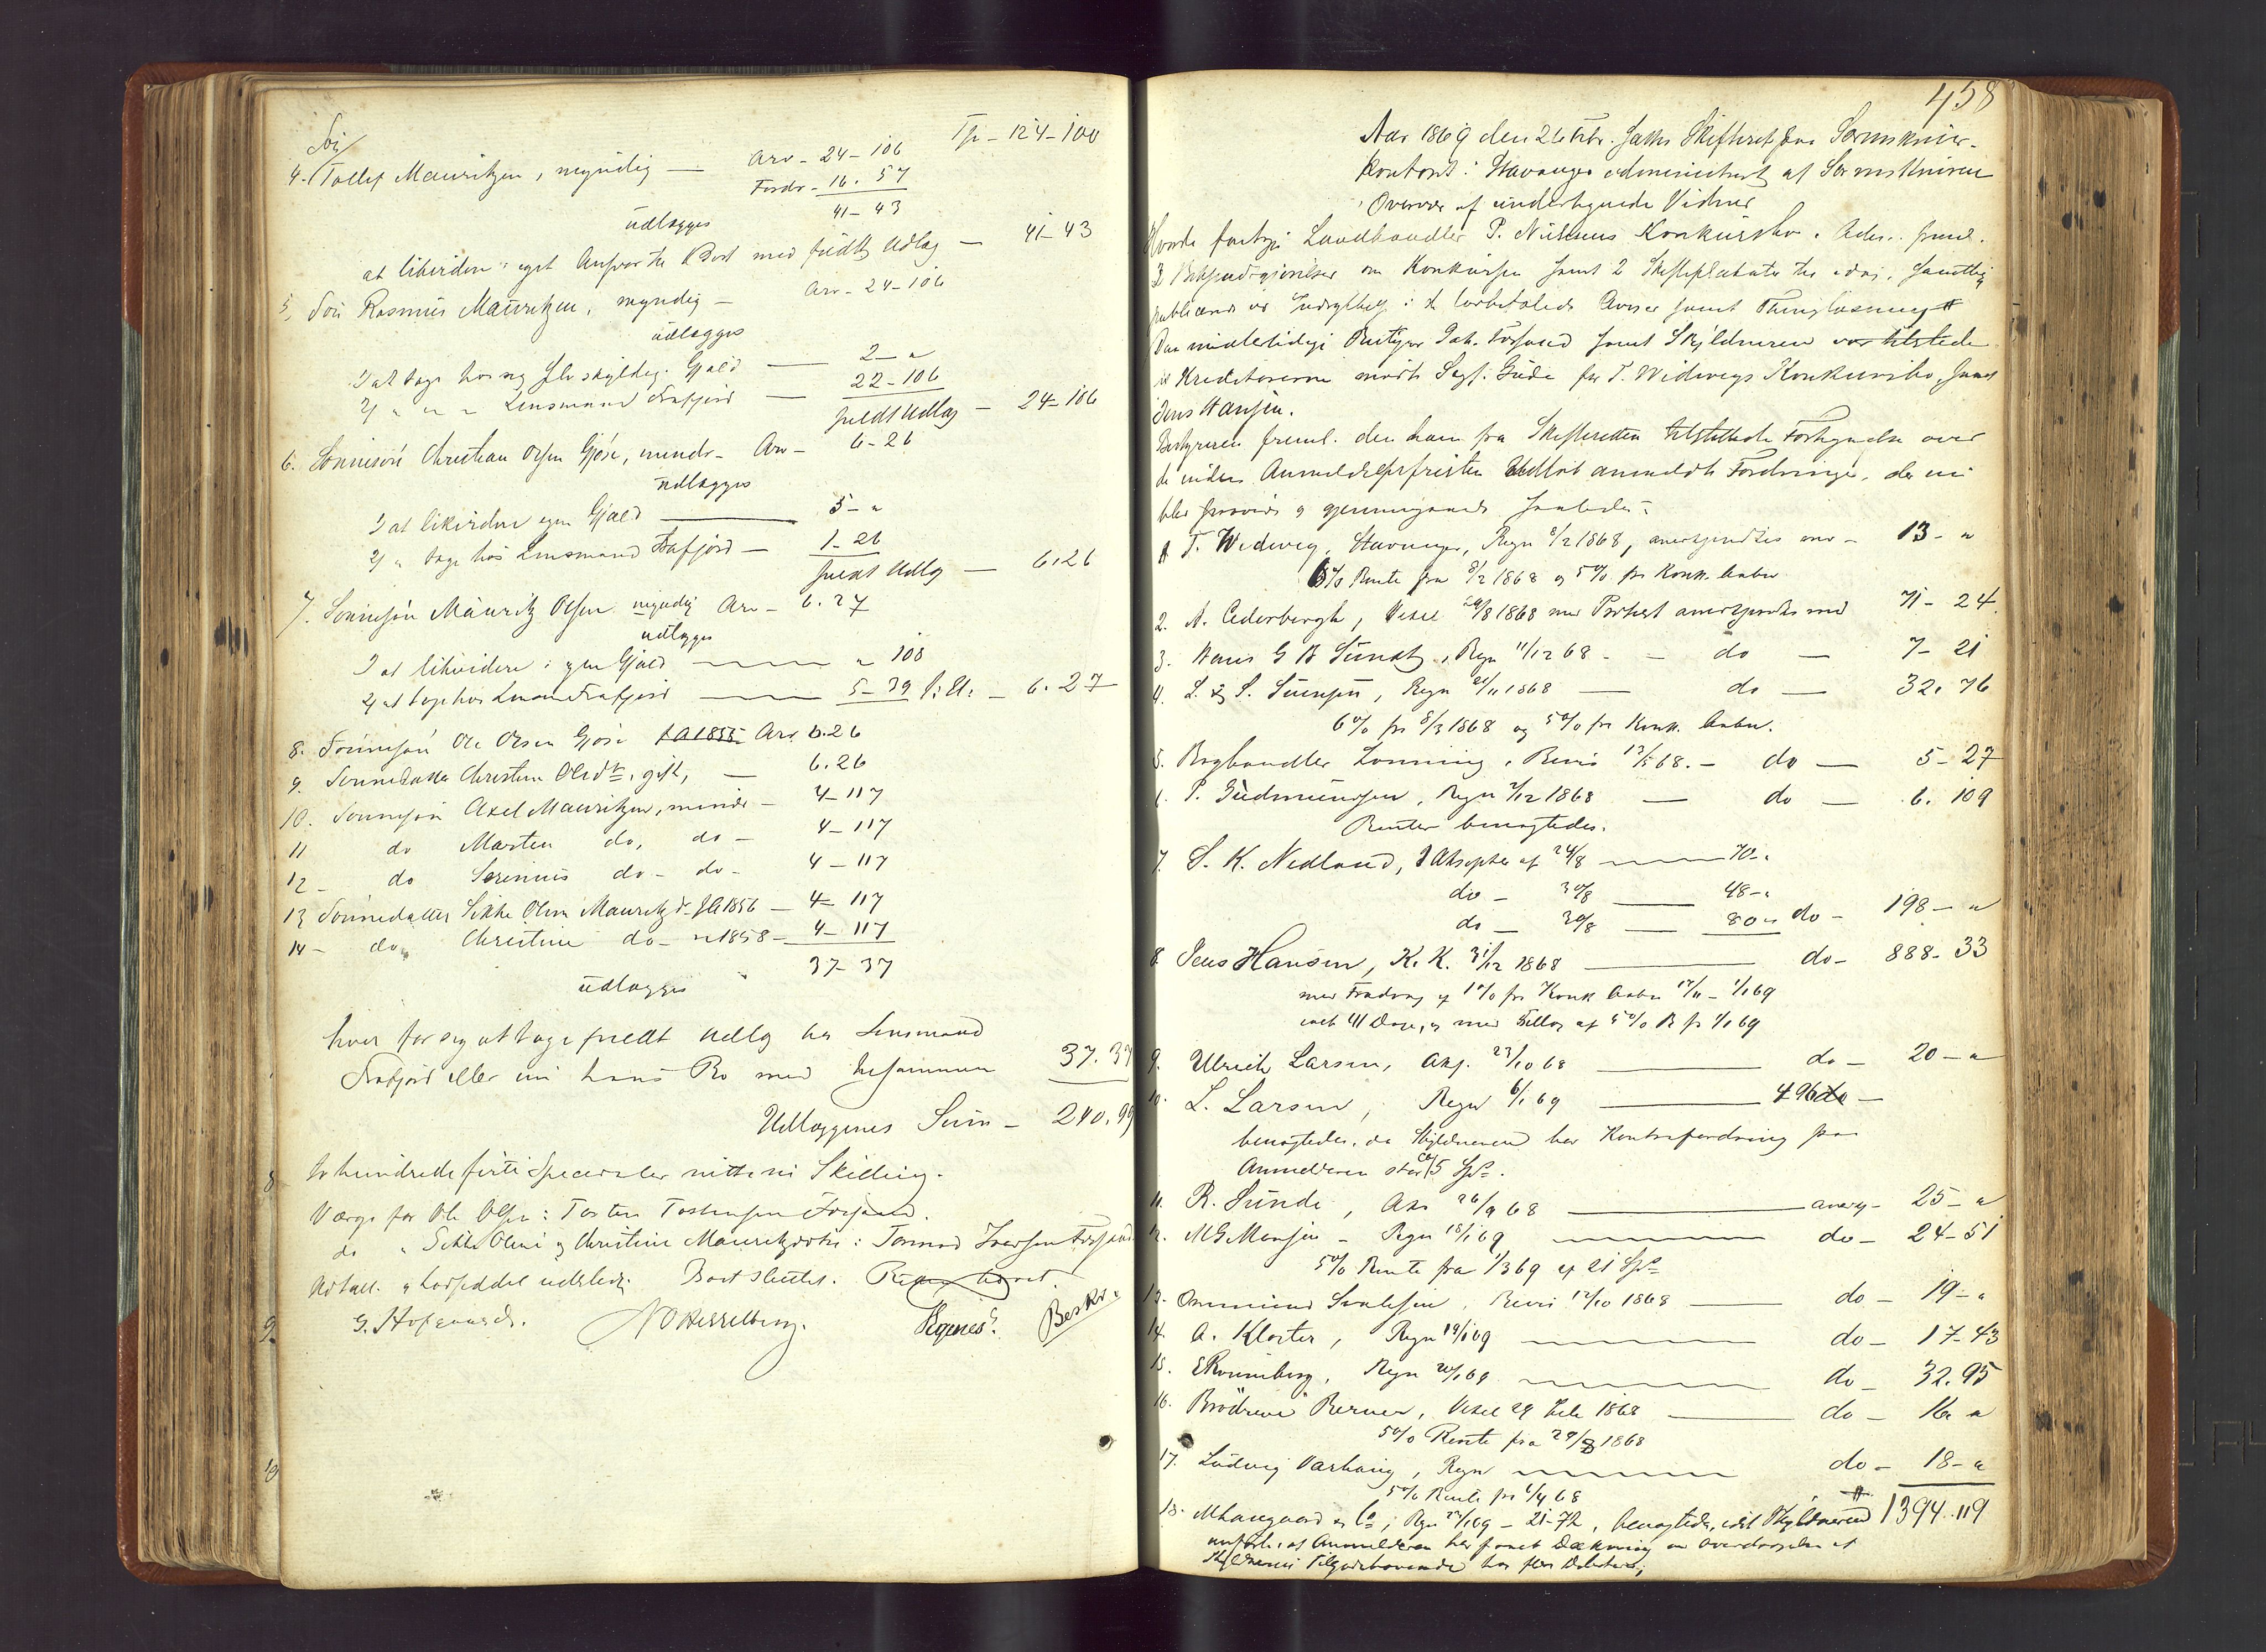 Tp - 124 - 100
4. Søn Tollef Mauritzen, myndig — Arv - 24 - 106
Fordr - 16. 57
41 - 43
udlægges
at likvidere i eget Ansvar til Boet med fuldt Udlæg — 41 - 43
5, Søn Rasmus Mauritzen, myndig — Arv - 24 - 106
udlægges
1 at tage hos sig selv skyldig Gjæld — 2 - "
2) " " " Lensmand Frafjord — 22 - 106
fuldt Udlæg — 24 - 106
6. Sønnesøn Christian Olsen Gjøse, mindr - Arv - 6 - 26
udlægges
1 at likvidere egen Gjæld — 5 - "
2) " tage hos Lensmand Frafjord — 1 - 26
fuldt Udlæg — 6. 26
7. Sønnesøn Mauritz Olsen myndig Arv - 6. 27
udlægges
1 at likvidere i egen Gjæld — " 108
2) at tage hos Lensm Frafjord — 5 - 39 f: U: - 6. 27
8. Sønnesøn Ole Olsen Gjøse f A 1855 Arv 6. 26
9. Sønnedatter Christine Olsdr, gift, — 6. 26
10. Sønnesøn Axel Mauritzen, mindr - 4 - 117
11 do Marten do, do - 4 - 117
12 - do Serinius do - do - 4 - 117
13 Sønnedatter Sikke Oline Mauritzdr f A 1856 - 4 - 117
14 - do Christine do - " 1858 - 4 - 117
37 - 37
udlægges
hver for sig at tage fuldt Udlæg hos Lensmand
Frafjord eller i hans Bo med tilsammen 37. 37
Udlæggenes Sum - 240. 99
to hundrede firti Speciedaler nitti ni Skilling.
Værge for Ole Olsen: Torsten Torstensen Forsand.
do " Sikke Oline og Christine Mauritzdøttre: Tormod Iversen Forsand
Udtall. & Lodseddel udstedt. Boet sluttet. hævet.
G. Hofgaard. N O Hesselberg. Regnes. Beskr.
458
Aar 1869 den 26 Febr. sattes Skifteret paa Sorenskriver-
kontoret i Stavanger administreret af Sorenskriveren
i Overvær af undertegnede Vidner
Hvorda foretoges Landhandler P. Nielsens Konkursbo. Adm. freml.
3 Bekjendtgjørelser om Konkursen samt 2 Skifteplakater til idag, samtlig
publicerede ved Indrykkelse i de lovbefalede Aviser samt Thinglæsning
Den midlertidige Bestyrer Joh. Forsand samt Skyldneren var tilstede
Af Kreditorerne mødte Sagf. Gude for T. Widweys Konkursbo, samt
Jens Hansen.
Bestyreren freml. den ham fra Skifteretten tilstillede Fortegnelse over
de inden Anmeldelsesfristens Udløb anmeldte Fordringer, der nu
blev prøvede og gjennemgaaede saaledes:
1 T. Widwey, Stavanger, Regn 8/2 1868, anerkjendtes med — 13 - "
6% Rente fra 8/2 1868 og 5% fra Konk. Aabn
2. A. Cederbergh, Vexel 24/8 1868 med Protest anerkjendtes med 71 - 24
3. Hans G B Sundt, Regn 11/12 68 - do — 7 - 21
4. L. & S. Svensen, Regn 21/11 1868 — do — 32. 76
6% fra 8/3 1868 og 5% fra Konk. Aabn.
5. Boghandler Lønning, Bevis 12/5 68. - do — 5 - 27
6. P. Gudmundsen, Regn 2/12 1868 — do — 6. 109
Renter benegtedes.
7. S. K. Nedland, 3 Aksepter af 24/8 — 70 - "
do - 30/8 — 48 - "
do - 30/8 — 80 " do - 198 - "
8 Jens Hansen, K. K. 31/12 1868 — do - 888 - 33
med Fradrag af 1% fra Konk Aabn 17/11 - 1/1 69
indt 41 Dage, og med Tillæg af 5% R fr 1/1 69
9. Ulrich Larsen, Aks. 23/10 68 — do - 20 - "
10. L. Larsen, Regn 6/1 69 — 4 96 do —
benegtedes, da Skyldneren har Kontrafordring paa
Anmelderen stor ca 15 Spd.
11. R. Sunde, Aks 26/9 68 — anerk - 25 - "
12. M G Monsen - Regn 18/1 69 — do - 24 - 51
5% Rente fra 1/3 69 af 21 Spd
13. Ommund Svalesen, Bevis 12/10 1868 — do - 19 - "
14. A. Kloster, Regn 19/1 69 — do - 17 - 43
15. E Rønneberg, Regn 20/1 69 — do - 32. 95
16. Brødrene Berner, Vexel 29 1868 — do - 16 "
5% Rente fra 29/8 1868
17. Ludvig Varhaug, Regn — do - 18 - "
5% Rente fra 1/4 68
18. M Haugaard & Co; Regn 22/1 69 - 21 - 72, benegtedes, idet Skyldneren 1394. 119
anførte, at Anmelderen har faaet Dækning ved Overdragelse af
Skyldnerens Tilgodehavende hos flere Debitorer,